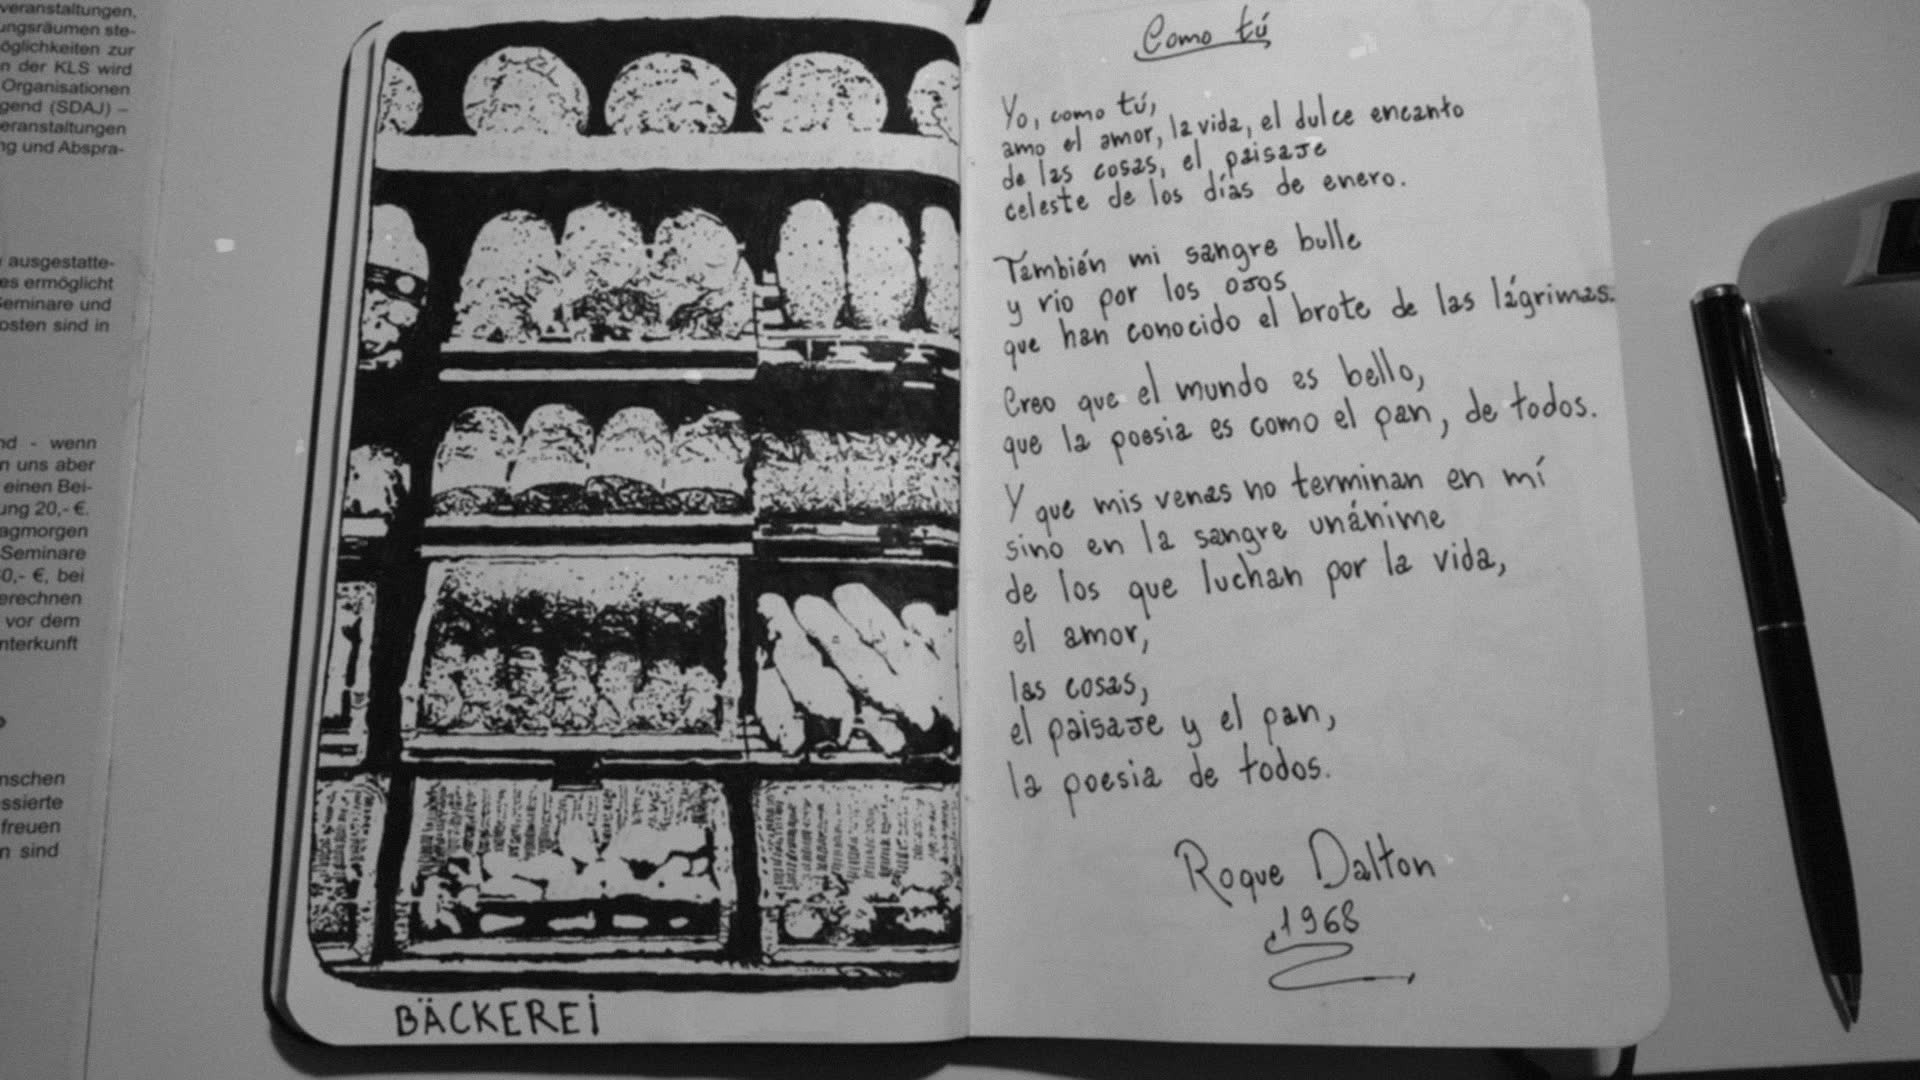 veranstaltungen,
ungsräumen ste-
öglichkeiten zur
n der KLS wird
Organisationen
gend (SDAJ) –
eranstaltungen
ng und Abspra-
ausgestatte-
es ermöglicht
Seminare und
osten sind in
nd - wenn
n uns aber
einen Bei-
ung 20,- €.
agmorgen
Seminare
0,- €, bei
erechnen
vor dem
nterkunft
nschen
essierte
freuen
n sind
BÄCKEREI
Como tú
Yo, como tú,
amo el amor, la vida, el dulce encanto
de las cosas, el paisaje
celeste de los días de enero.
También mi sangre bulle
y rio por los ojos
que han conocido el brote de las lágrimas.
Creo que el mundo es bello,
que la poesia es como el pan, de todos.
Y que mis venas no terminan en mí
sino en la sangre unánime
de los que luchan por la vida,
el amor,
las cosas,
el paisaje y el pan,
la poesia de todos.
Roque Dalton
1968